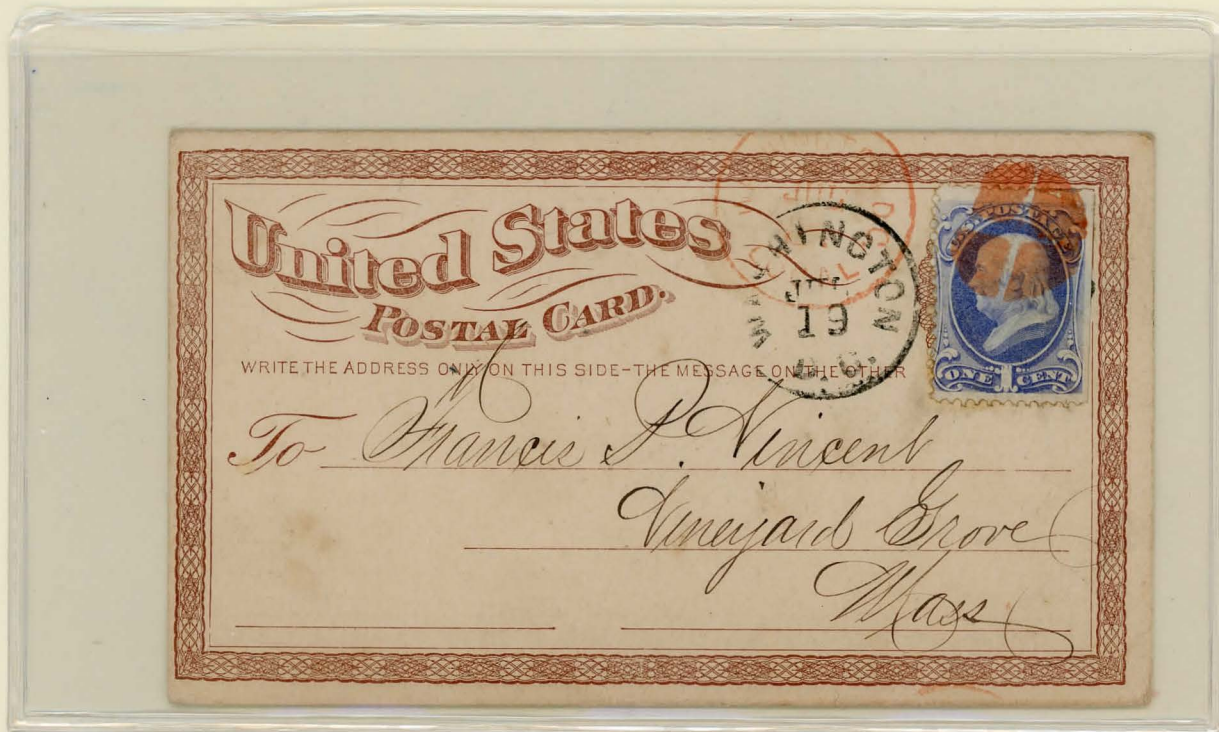 United States
POSTAL CARD.
WRITE THE ADDRESS ONLY ON THIS SIDE-THE MESSAGE ON THE OTHER
WASHINGTON
JUL
19
D.C.
U.S. POSTAGE
ONE 1 CENT
To Francis P. Vincent
Vineyard Grove
Mass